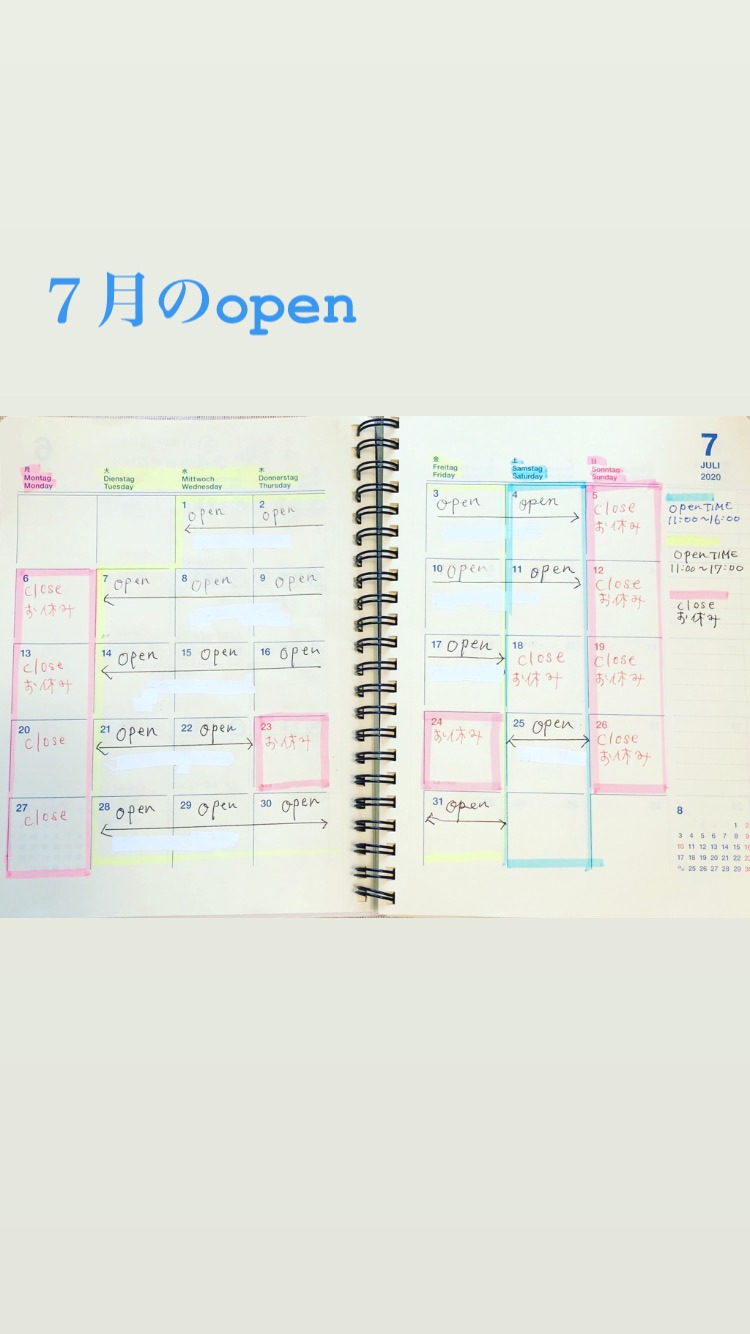 7月のopen
月 火 水 木
Montag Dienstag Mittwoch Donnerstag
Monday Tuesday Wednesday Thursday
1 open 2 open
6 close お休み 7 open 8 open 9 open
13 close お休み 14 open 15 open 16 open
20 close 21 open 22 open 23 お休み
27 close 28 open 29 open 30 open
金 土 日
Freitag Samstag Sonntag
Friday Saturday Sunday
3 open 4 open 5 close お休み
10 open 11 open 12 close お休み
17 open 18 close お休み 19 close お休み
24 お休み 25 open 26 close お休み
31 open
7
JULI
2020
open TIME
11:00〜16:00
open TIME
11:00〜17:00
close
お休み
8
1 2
3 4 5 6 7 8 9
10 11 12 13 14 15 16
17 18 19 20 21 22 23
25 26 27 28 29 30